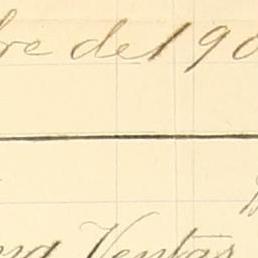 bre de 190
Ventas